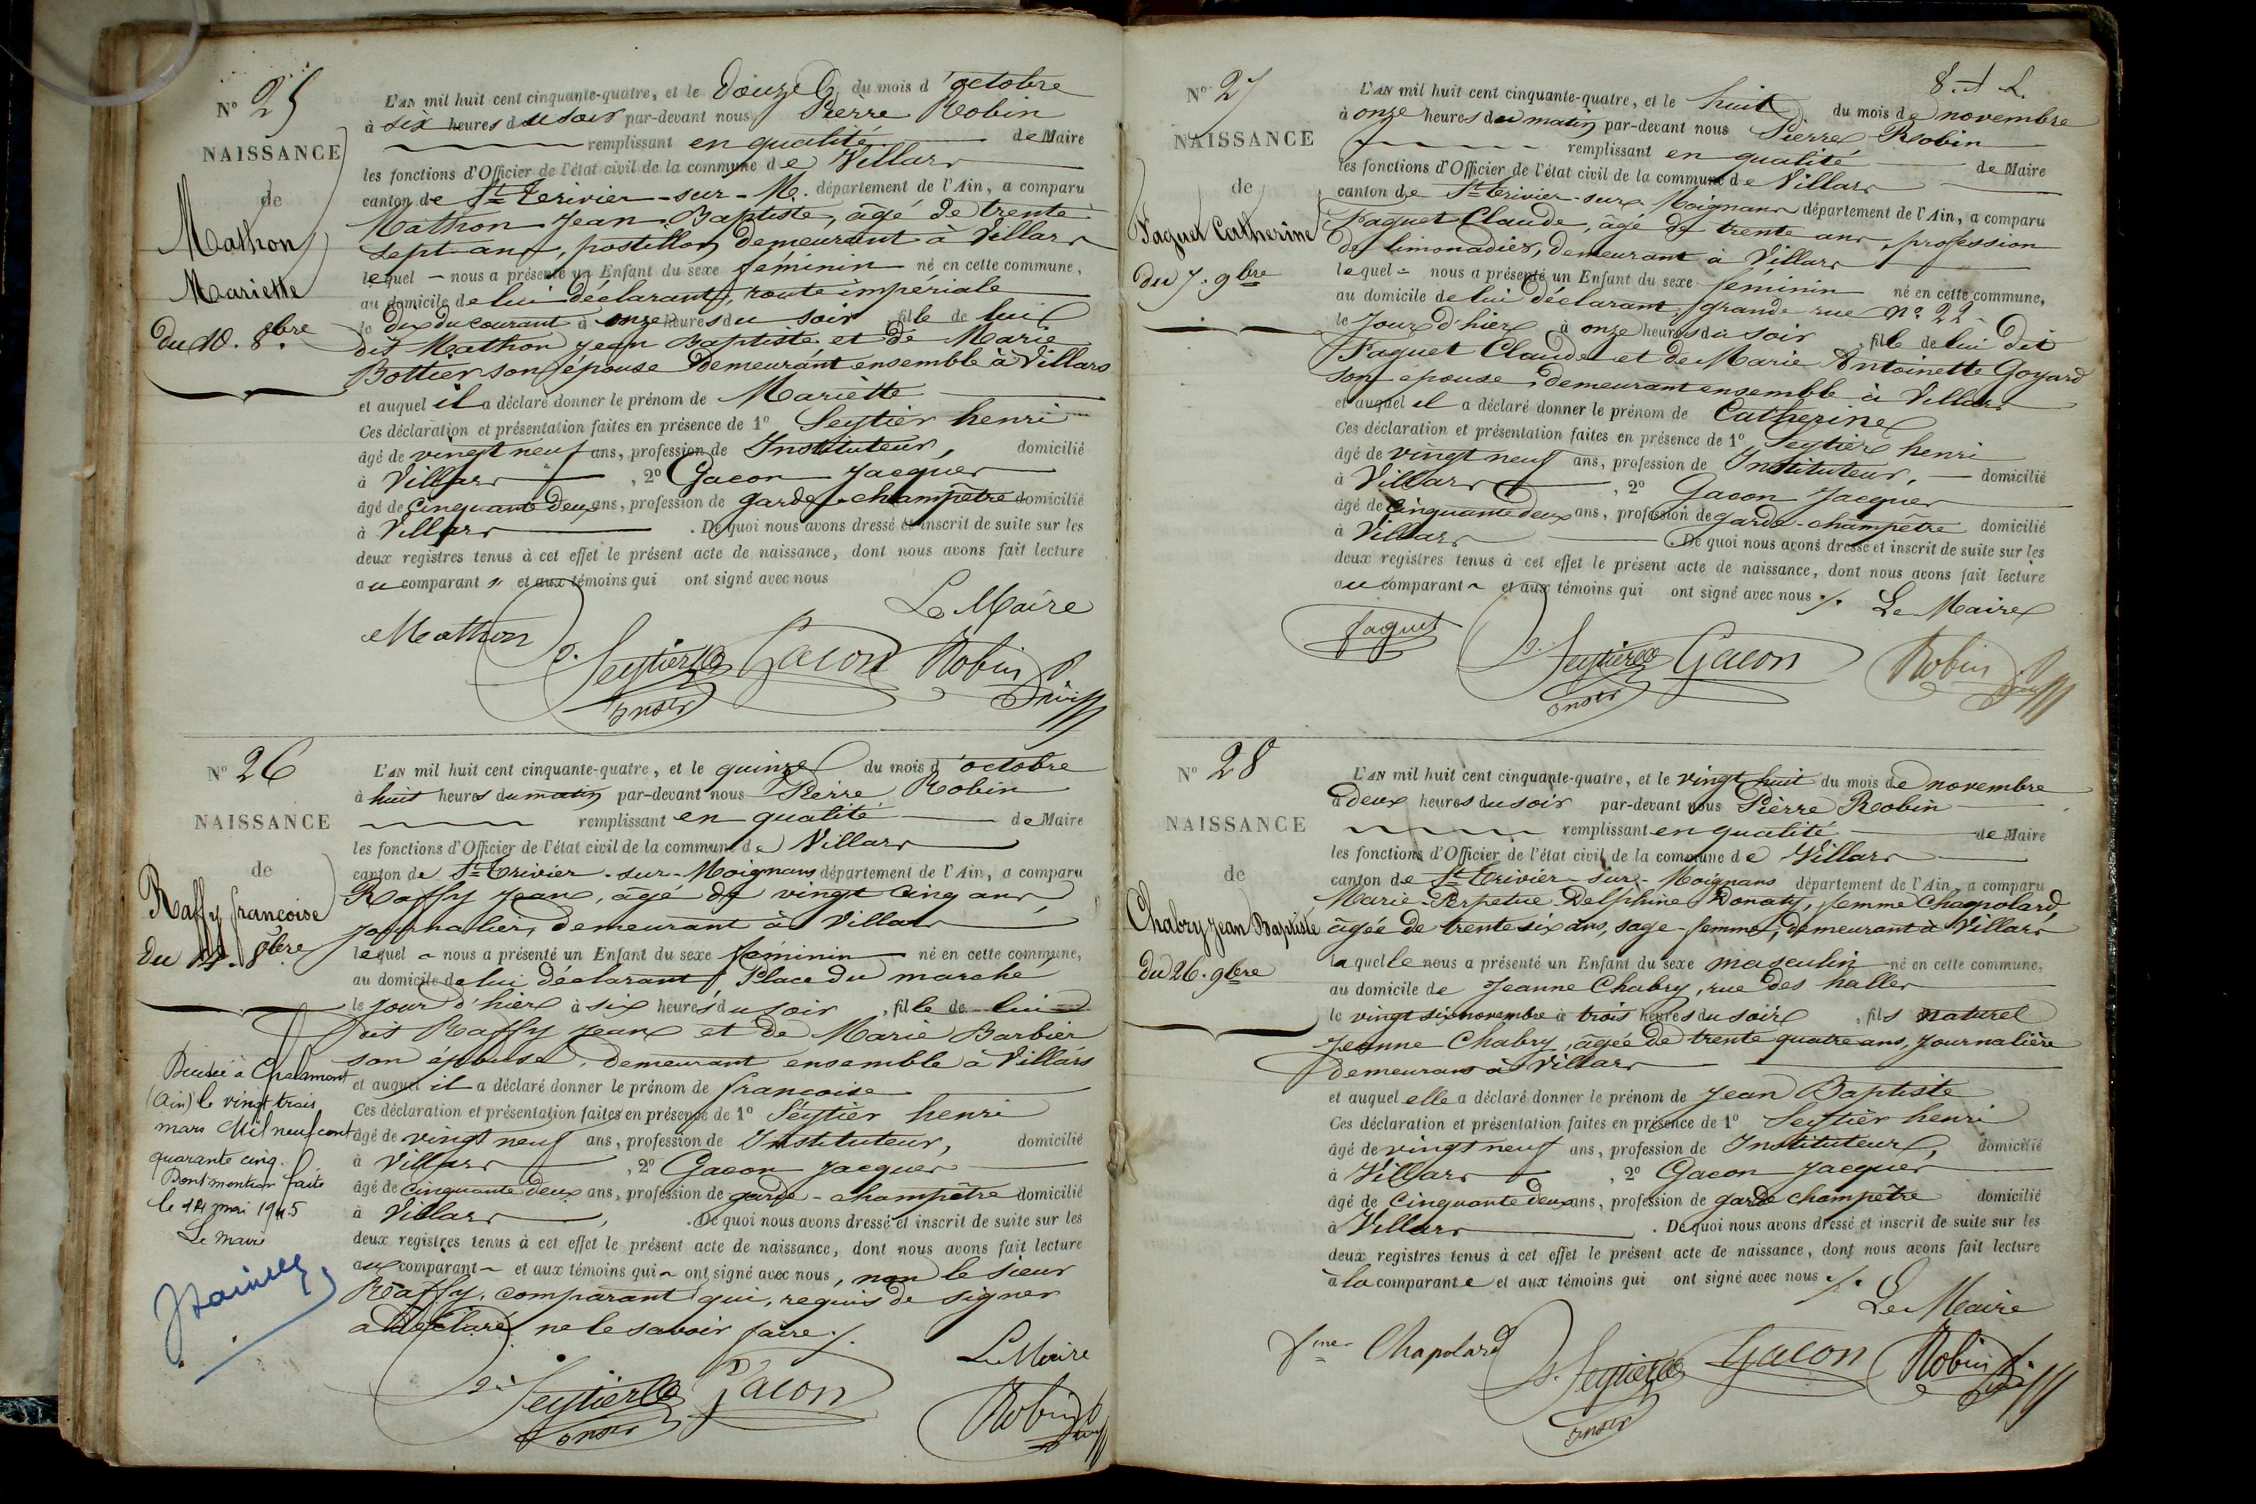 N° 25
NAISSANCE
de
Mathon
Mariette
du 10. 8bre
L'AN mil huit cent cinquante-quatre, et le Douze du mois d'octobre
à six heures du soir par-devant nous Pierre Robin
remplissant en qualité de Maire
les fonctions d'Officier de l'état civil de la commune de Villars
canton de St Trivier-sur-M. département de l'Ain, a comparu
Mathon Jean Baptiste, âgé de trente
sept ans, postillon demeurant à Villars
lequel nous a présenté un Enfant du sexe féminin né en cette commune,
au domicile de lui déclarant, route impériale
le dix du courant à onze heures du soir, fille de lui
dit Mathon Jean Baptiste et de Marie
Bottier son épouse demeurant ensemble à Villars
et auquel il a déclaré donner le prénom de Mariette
Ces déclaration et présentation faites en présence de 1° Seytier henri
âgé de vingt neuf ans, profession de Instituteur, domicilié
à Villars, 2° Gacon Jacques
âgé de cinquante deux ans, profession de garde-champêtre domicilié
à Villars. De quoi nous avons dressé et inscrit de suite sur les
deux registres tenus à cet effet le présent acte de naissance, dont nous avons fait lecture
au comparant et aux témoins qui ont signé avec nous
Le Maire
Mathon Seytier Gacon Robin
N° 26
NAISSANCE
de
Raffy françoise
du 14. 8bre
L'AN mil huit cent cinquante-quatre, et le quinze du mois d'octobre
à huit heures du matin par-devant nous Pierre Robin
remplissant en qualité de Maire
les fonctions d'Officier de l'état civil de la commune de Villars
canton de St Trivier-sur-Moignans département de l'Ain, a comparu
Raffy Jean, âgé de vingt cinq ans,
journalier, demeurant à Villars
lequel nous a présenté un Enfant du sexe féminin né en cette commune,
au domicile de lui déclarant, Place du marché
le jour d'hier à six heures du soir, fille de lui
dit Raffy Jean et de Marie Barbier
son épouse, demeurant ensemble à Villars
et auquel il a déclaré donner le prénom de françoise
Ces déclaration et présentation faites en présence de 1° Seytier henri
âgé de vingt neuf ans, profession de Instituteur, domicilié
à Villars, 2° Gacon Jacques
âgé de cinquante deux ans, profession de garde-champêtre domicilié
à Villars, De quoi nous avons dressé et inscrit de suite sur les
deux registres tenus à cet effet le présent acte de naissance, dont nous avons fait lecture
au comparant et aux témoins qui ont signé avec nous, non le sieur
Raffy, comparant qui, requis de signer
a déclaré ne le savoir faire ./.
Le Maire
Seytier Gacon Robin
Décédée à Chalamont
(Ain) le vingt trois
mars Mil neuf cent
quarante cinq.
Dont mention faite
le 14 mai 1945
Le maire
N° 27
NAISSANCE
de
Faguet Catherine
du 7. 9bre
L'AN mil huit cent cinquante-quatre, et le huit du mois de novembre
à onze heures du matin par-devant nous Pierre Robin
remplissant en qualité de Maire
les fonctions d'Officier de l'état civil de la commune de Villars
canton de St Trivier-sur-Moignans département de l'Ain, a comparu
Faguet Claude, âgé de trente ans, profession
de limonadier, demeurant à Villars
lequel nous a présenté un Enfant du sexe féminin né en cette commune,
au domicile de lui déclarant, grande rue n° 22
le Jour d'hier à onze heures du soir, fille de lui dit
Faguet Claude et de Marie Antoinette Goyard
son épouse, demeurant ensemble à Villars
et auquel il a déclaré donner le prénom de Catherine
Ces déclaration et présentation faites en présence de 1° Seytier henri
âgé de vingt neuf ans, profession de Instituteur, domicilié
à Villars, 2° Gacon Jacques
âgé de cinquante deux ans, profession de garde-champêtre domicilié
à Villars De quoi nous avons dressé et inscrit de suite sur les
deux registres tenus à cet effet le présent acte de naissance, dont nous avons fait lecture
au comparant et aux témoins qui ont signé avec nous ./. Le Maire
faguet Seytier Gacon Robin
N° 28
NAISSANCE
de
Chabry Jean Baptiste
du 26. 9bre
L'AN mil huit cent cinquante-quatre, et le vingt huit du mois de novembre
à deux heures du soir par-devant nous Pierre Robin
remplissant en qualité de Maire
les fonctions d'Officier de l'état civil de la commune de Villars
canton de St Trivier-sur-Moignans département de l'Ain, a comparu
Marie-Perpetue Delphine Donaty, femme Chapolard,
âgée de trente six ans, sage-femme, demeurant à Villars
laquelle nous a présenté un Enfant du sexe masculin né en cette commune,
au domicile de Jeanne Chabry, rue des halles
le vingt six novembre à trois heures du soir, fils naturel
Jeanne Chabry, âgée de trente quatre ans, Journalière
demeurant à Villars
et auquel elle a déclaré donner le prénom de Jean Baptiste
Ces déclaration et présentation faites en présence de 1° Seytier henri
âgé de vingt neuf ans, profession de Instituteur, domicilié
à Villars, 2° Gacon Jacques
âgé de cinquante deux ans, profession de garde champêtre domicilié
à Villars. De quoi nous avons dressé et inscrit de suite sur les
deux registres tenus à cet effet le présent acte de naissance, dont nous avons fait lecture
à la comparante et aux témoins qui ont signé avec nous ./.
Le Maire
fme Chapolard Seytier Gacon Robin